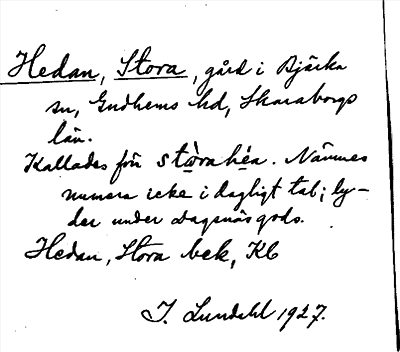 Hedan, Stora, gård i Bjärka
sn, Gudhems hd, Skaraborgs
län.
Kallades förr stòrahéa. Nämnes
numera icke i dagligt tal; ly-
der under Dagsnäs gods.
Hedan, Stora bek, Kb
I. Lundahl 1927.